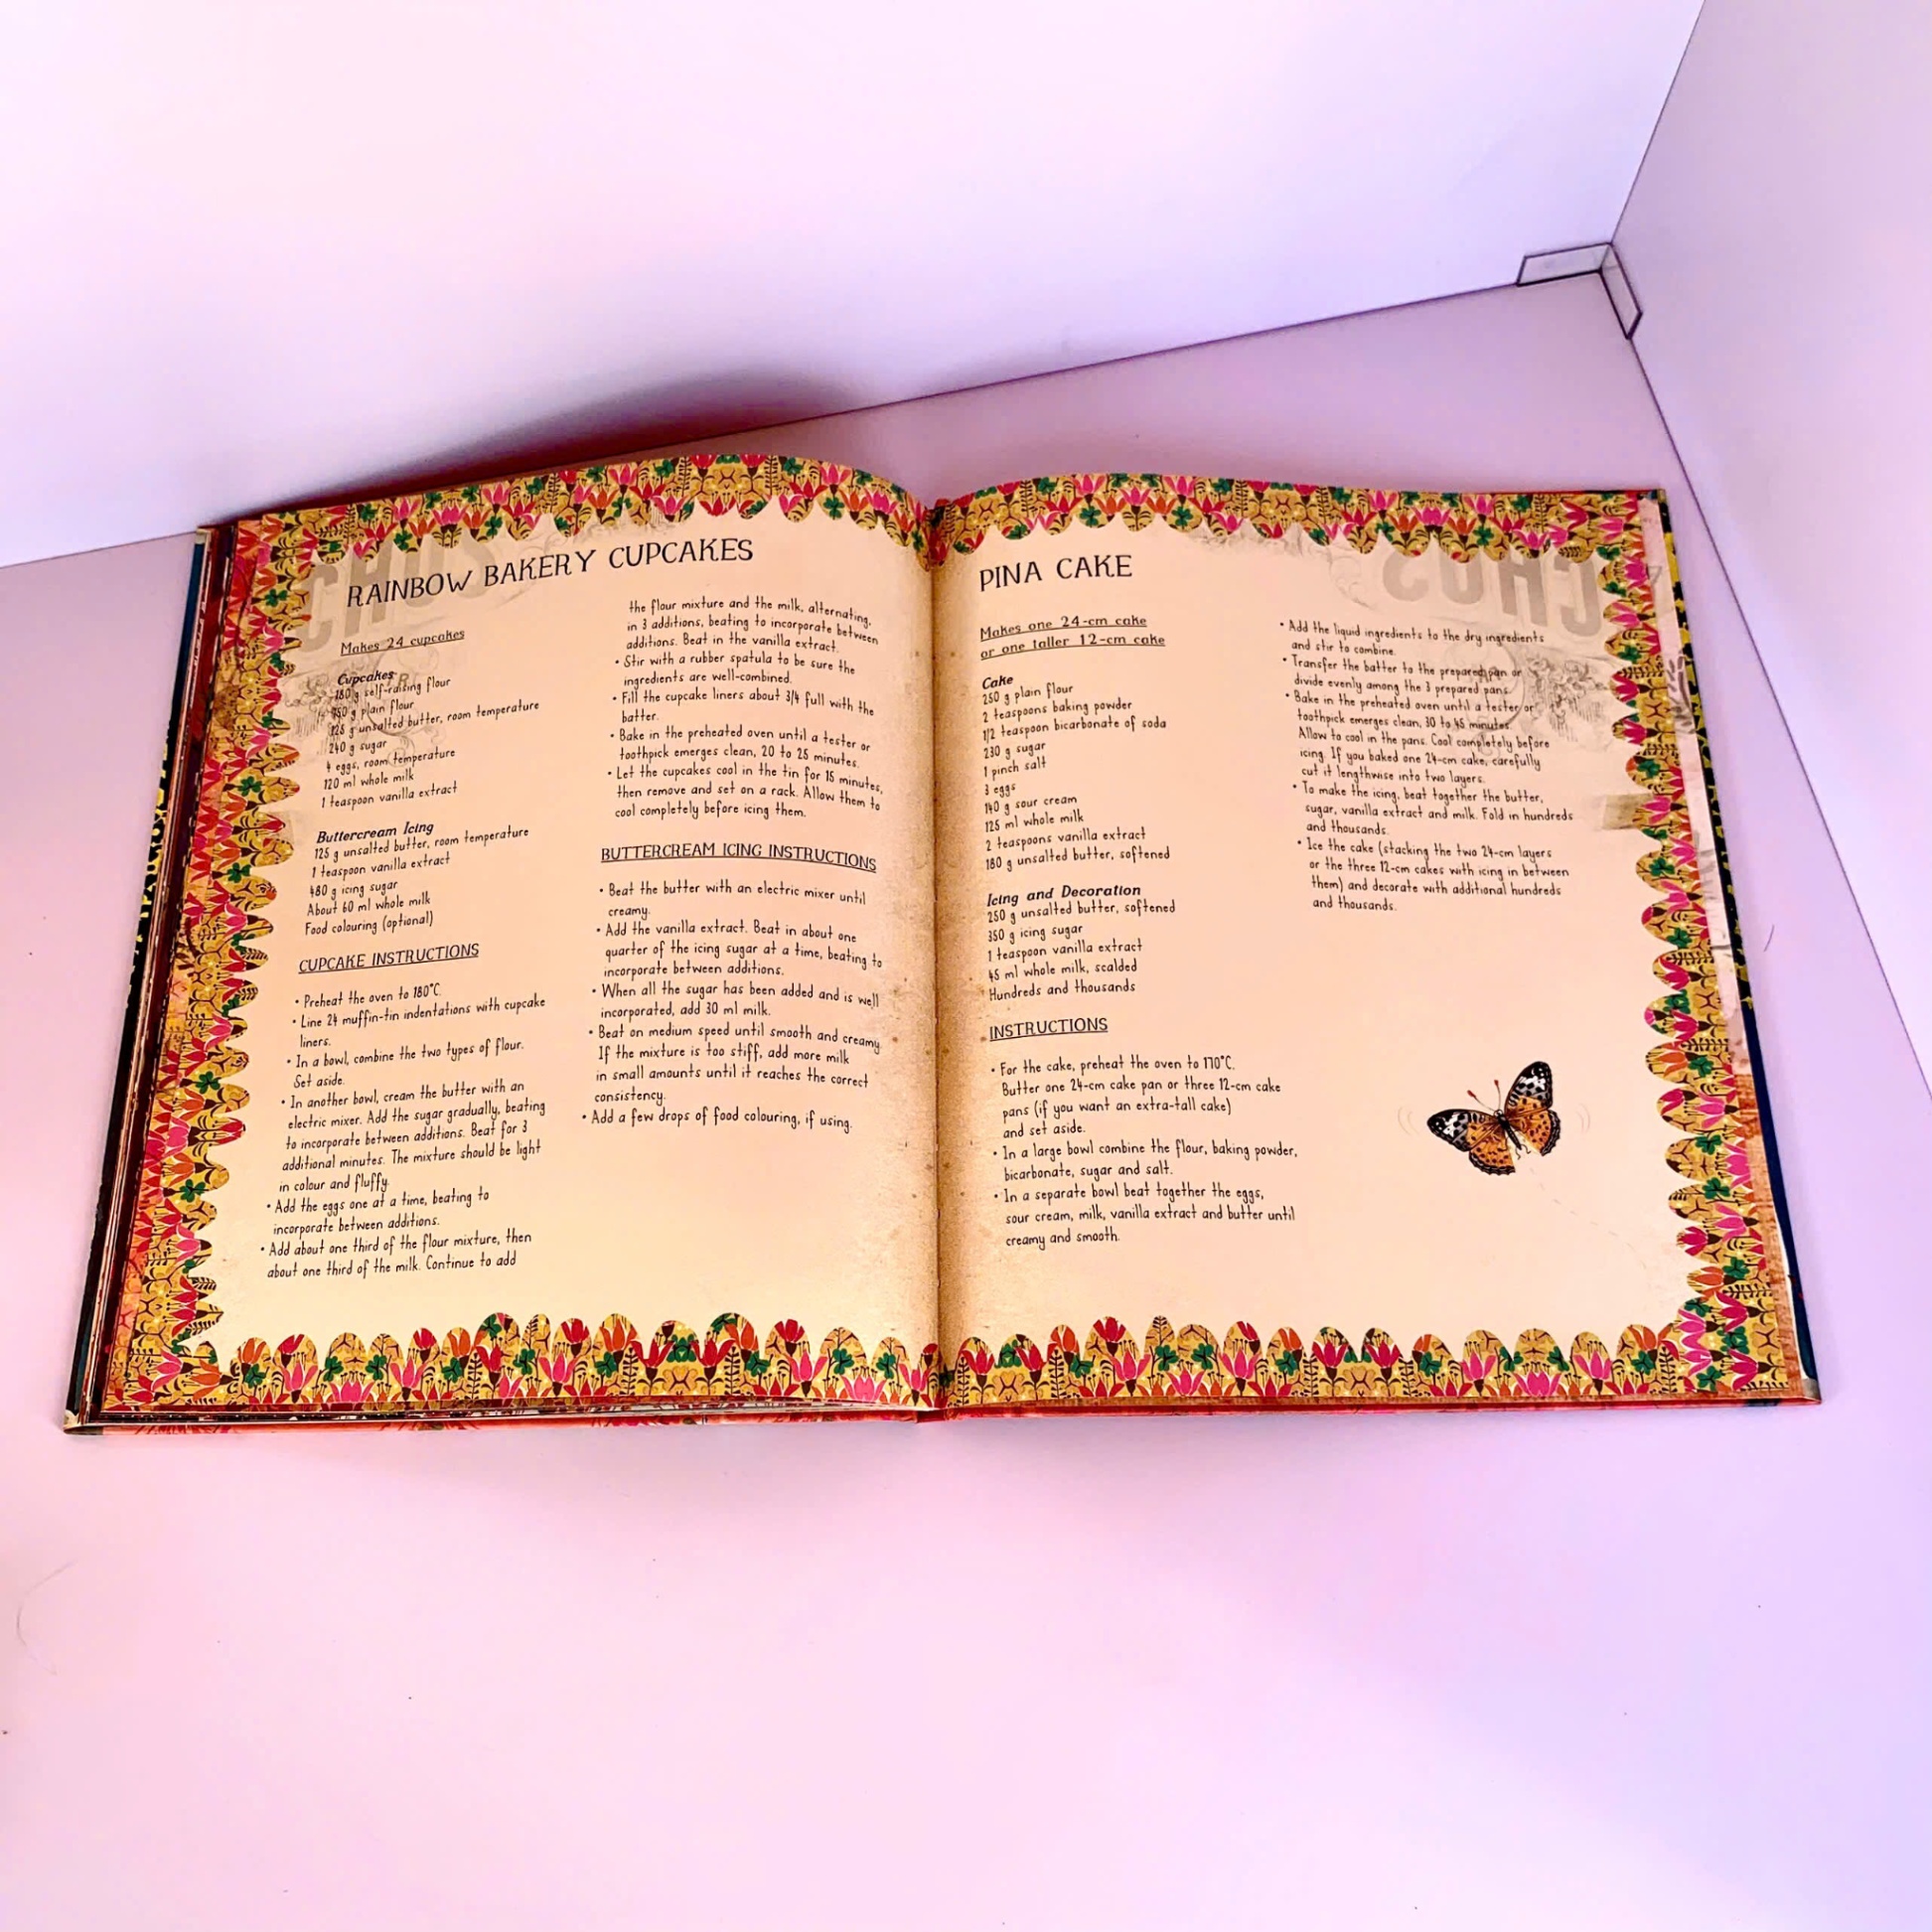 RAINBOW BAKERY CUPCAKES
Makes 24 cupcakes
Cupcakes
180 g self-raising flour
150 g plain flour
125 g unsalted butter, room temperature
240 g sugar
4 eggs, room temperature
120 ml whole milk
1 teaspoon vanilla extract
Buttercream Icing
125 g unsalted butter, room temperature
1 teaspoon vanilla extract
480 g icing sugar
About 60 ml whole milk
Food colouring (optional)
CUPCAKE INSTRUCTIONS
• Preheat the oven to 180°C.
• Line 24 muffin-tin indentations with cupcake
liners.
• In a bowl, combine the two types of flour.
Set aside.
• In another bowl, cream the butter with an
electric mixer. Add the sugar gradually, beating
to incorporate between additions. Beat for 3
additional minutes. The mixture should be light
in colour and fluffy.
• Add the eggs one at a time, beating to
incorporate between additions.
• Add about one third of the flour mixture, then
about one third of the milk. Continue to add
the flour mixture and the milk, alternating,
in 3 additions, beating to incorporate between
additions. Beat in the vanilla extract.
• Stir with a rubber spatula to be sure the
ingredients are well-combined.
• Fill the cupcake liners about 3/4 full with the
batter.
• Bake in the preheated oven until a tester or
toothpick emerges clean, 20 to 25 minutes.
• Let the cupcakes cool in the tin for 15 minutes,
then remove and set on a rack. Allow them to
cool completely before icing them.
BUTTERCREAM ICING INSTRUCTIONS
• Beat the butter with an electric mixer until
creamy.
• Add the vanilla extract. Beat in about one
quarter of the icing sugar at a time, beating to
incorporate between additions.
• When all the sugar has been added and is well
incorporated, add 30 ml milk.
• Beat on medium speed until smooth and creamy.
If the mixture is too stiff, add more milk
in small amounts until it reaches the correct
consistency.
• Add a few drops of food colouring, if using.
PINA CAKE
Makes one 24-cm cake
or one taller 12-cm cake
Cake
250 g plain flour
2 teaspoons baking powder
1/2 teaspoon bicarbonate of soda
230 g sugar
1 pinch salt
3 eggs
140 g sour cream
125 ml whole milk
2 teaspoons vanilla extract
180 g unsalted butter, softened
Icing and Decoration
250 g unsalted butter, softened
350 g icing sugar
1 teaspoon vanilla extract
45 ml whole milk, scalded
Hundreds and thousands
INSTRUCTIONS
• For the cake, preheat the oven to 170°C.
Butter one 24-cm cake pan or three 12-cm cake
pans (if you want an extra-tall cake)
and set aside.
• In a large bowl combine the flour, baking powder,
bicarbonate, sugar and salt.
• In a separate bowl beat together the eggs,
sour cream, milk, vanilla extract and butter until
creamy and smooth.
• Add the liquid ingredients to the dry ingredients
and stir to combine.
• Transfer the batter to the prepared pan or
divide evenly among the 3 prepared pans.
• Bake in the preheated oven until a tester or
toothpick emerges clean, 30 to 45 minutes.
Allow to cool in the pans. Cool completely before
icing. If you baked one 24-cm cake, carefully
cut it lengthwise into two layers.
• To make the icing, beat together the butter,
sugar, vanilla extract and milk. Fold in hundreds
and thousands.
• Ice the cake (stacking the two 24-cm layers
or the three 12-cm cakes with icing in between
them) and decorate with additional hundreds
and thousands.